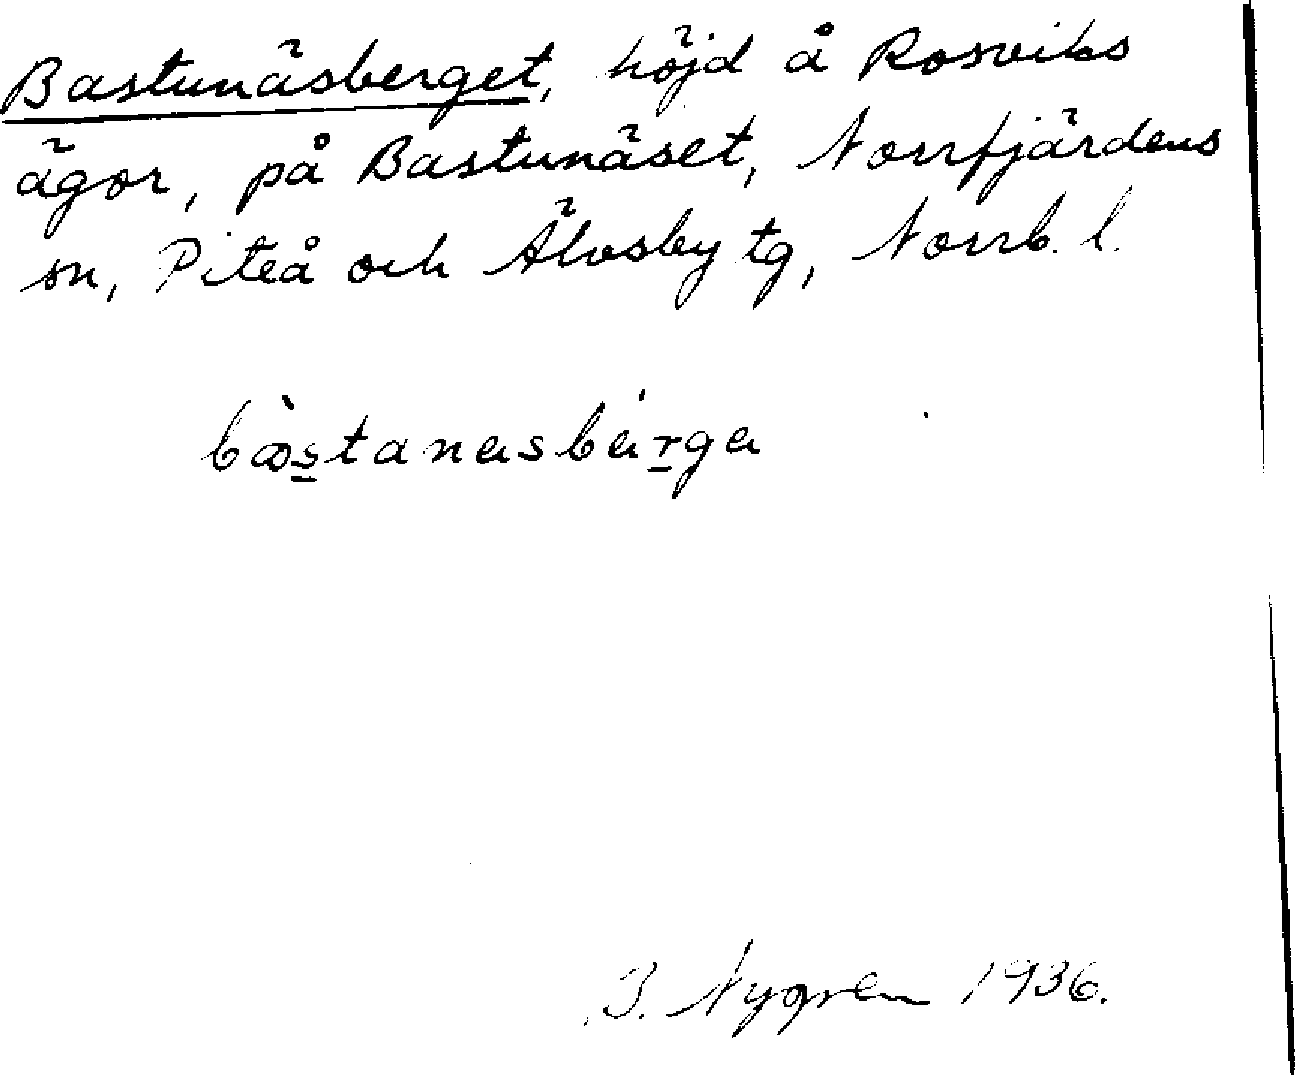 Bastunäsberget, höjd å Rosviks
ägor, på Bastunäset, Norrfjärdens
sn, Piteå och Älvsby tg, Norrb. l.
I. Nygren 1936.